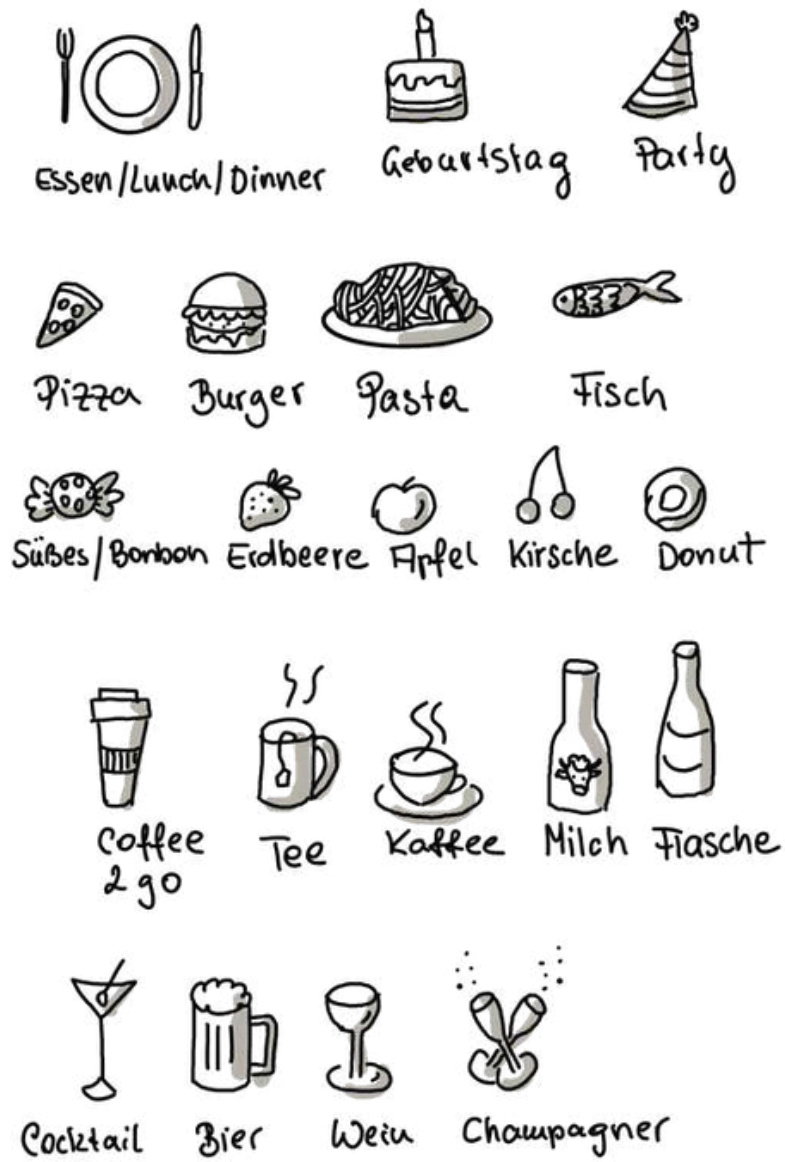 Essen/Lunch/Dinner Geburtstag Party
Pizza Burger Pasta Fisch
Süßes/Bonbon Erdbeere Apfel Kirsche Donut
Coffee Tee Kaffee Milch Flasche
2 go
Cocktail Bier Wein Champagner